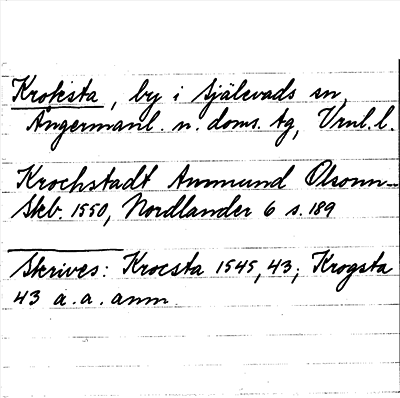 Kroksta, by i Själevads sn,
Ångermanl. n. doms. tg, Vrnl. l.
Krochstadt Ammund Olsonn
Skb. 1550, Nordlander 6 s. 189
Skrives: Krocsta 1545, 43; Krogsta
43 a. a. anm